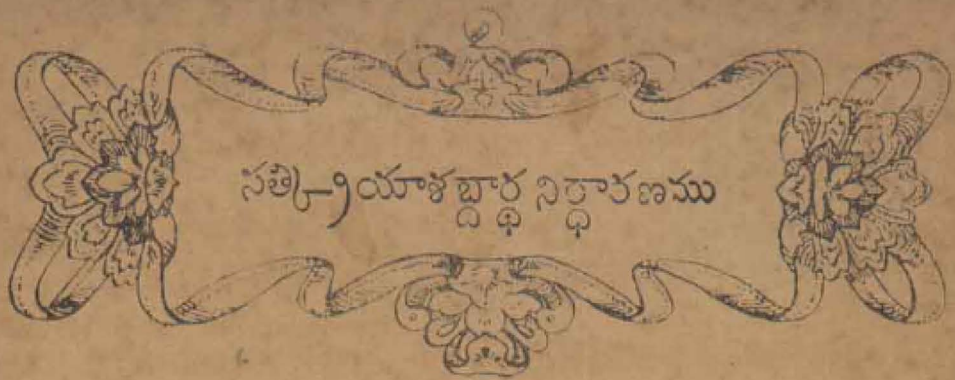 సత్క్రియాశబ్దార్థ నిర్ధారణము